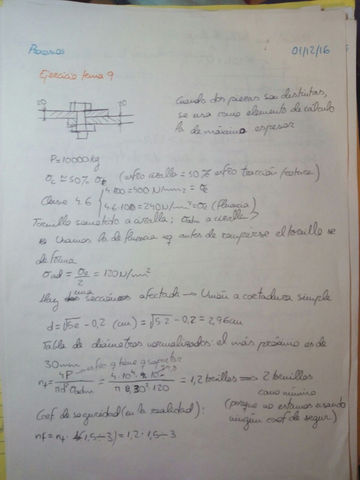 Procesos
01/12/16
Ejercicio tema 9
Cuando dos piezas son distintas,
se usa como elemento de cálculo
la de máximo espesor
P=10000kg
σc ≃ 50% σ (esfzo cizalla = 50% esfzo tracción/rotura)
4·100=400 N/mm² =
Clase 4.6
4·6·10=240 N/mm² = (Fluencia)
Tornillo sometido a cizalla; σadm a cizalla
Usamos la de fluencia antes de romperse el tornillo se
deforma
σad = /2 = 120N/mm²
Hay una sección afectada → Unión a cortadura simple
d=√5e - 0,2 (cm) = √5·2 - 0,2 = 2,96cm
Tabla de diámetros normalizados: el más próximo es de
30mm
esfzo q tiene q soportar
nt = 4P/πd²σadm = = 1,2 tornillos ⇒ 2 tornillos
como mínimo
Coef de seguridad (en la realidad):
(porque no estamos usando
ningún coef de segur)
nf = nt · (1,5÷3) = 1,2 · 1,5÷3